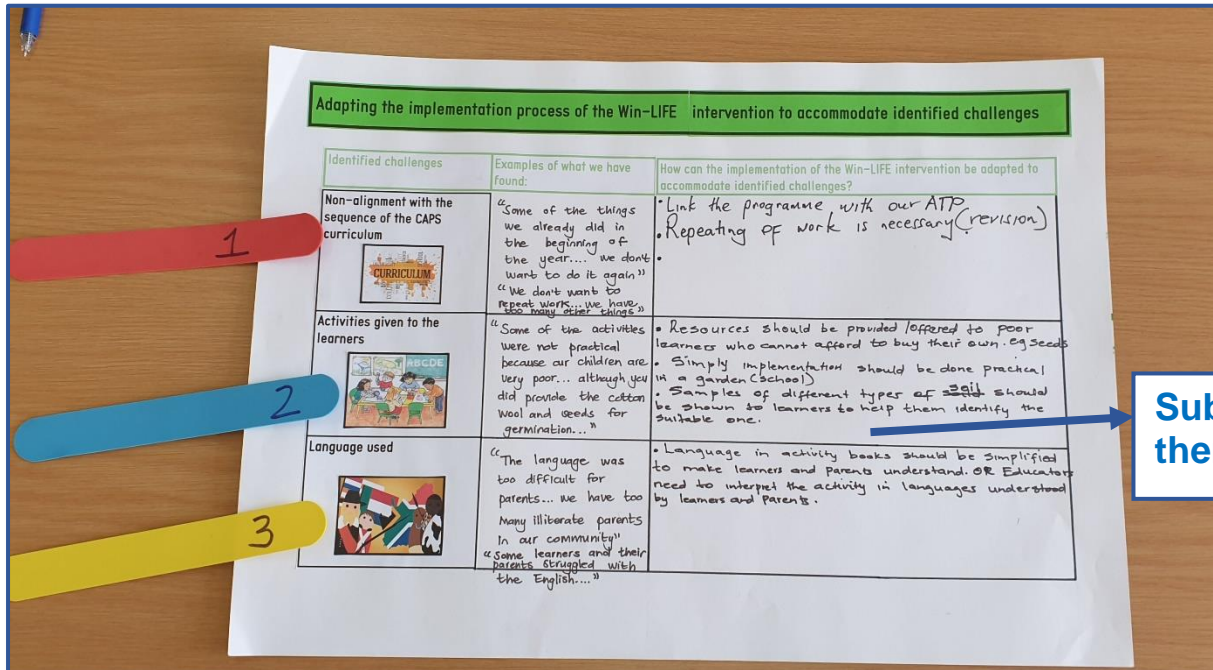 Adapting the implementation process of the Win-LIFE intervention to accommodate identified challenges
Identified challenges
Examples of what we have
found:
How can the implementation of the Win-LIFE intervention be adapted to
accommodate identified challenges?
1
Non-alignment with the
sequence of the CAPS
curriculum
CURRICULUM
"Some of the things
we already did in
the beginning of
the year.... we don't
want to do it again"
"We don't want to
repeat work... we have
too many other things"
• Link the programme with our ATP
• Repeating of work is necessary (revision)
•
2
Activities given to the
learners
ABCDE
"Some of the activities
were not practical
because our children are
very poor... although you
did provide the cotton
wool and seeds for
germination..."
• Resources should be provided/offered to poor
learners who cannot afford to buy their own. eg seeds
• Simply implementation should be done practical
in a garden (school)
• Samples of different types of soil should
be shown to learners to help them identify the
suitable one.
3
Language used
"The language was
too difficult for
parents... we have too
many illiterate parents
in our community"
"Some learners and their
parents struggled with
the English...."
• Language in activity books should be simplified
to make learners and parents understand. OR Educators
need to interpret the activity in languages understood
by learners and parents.
Sub
the